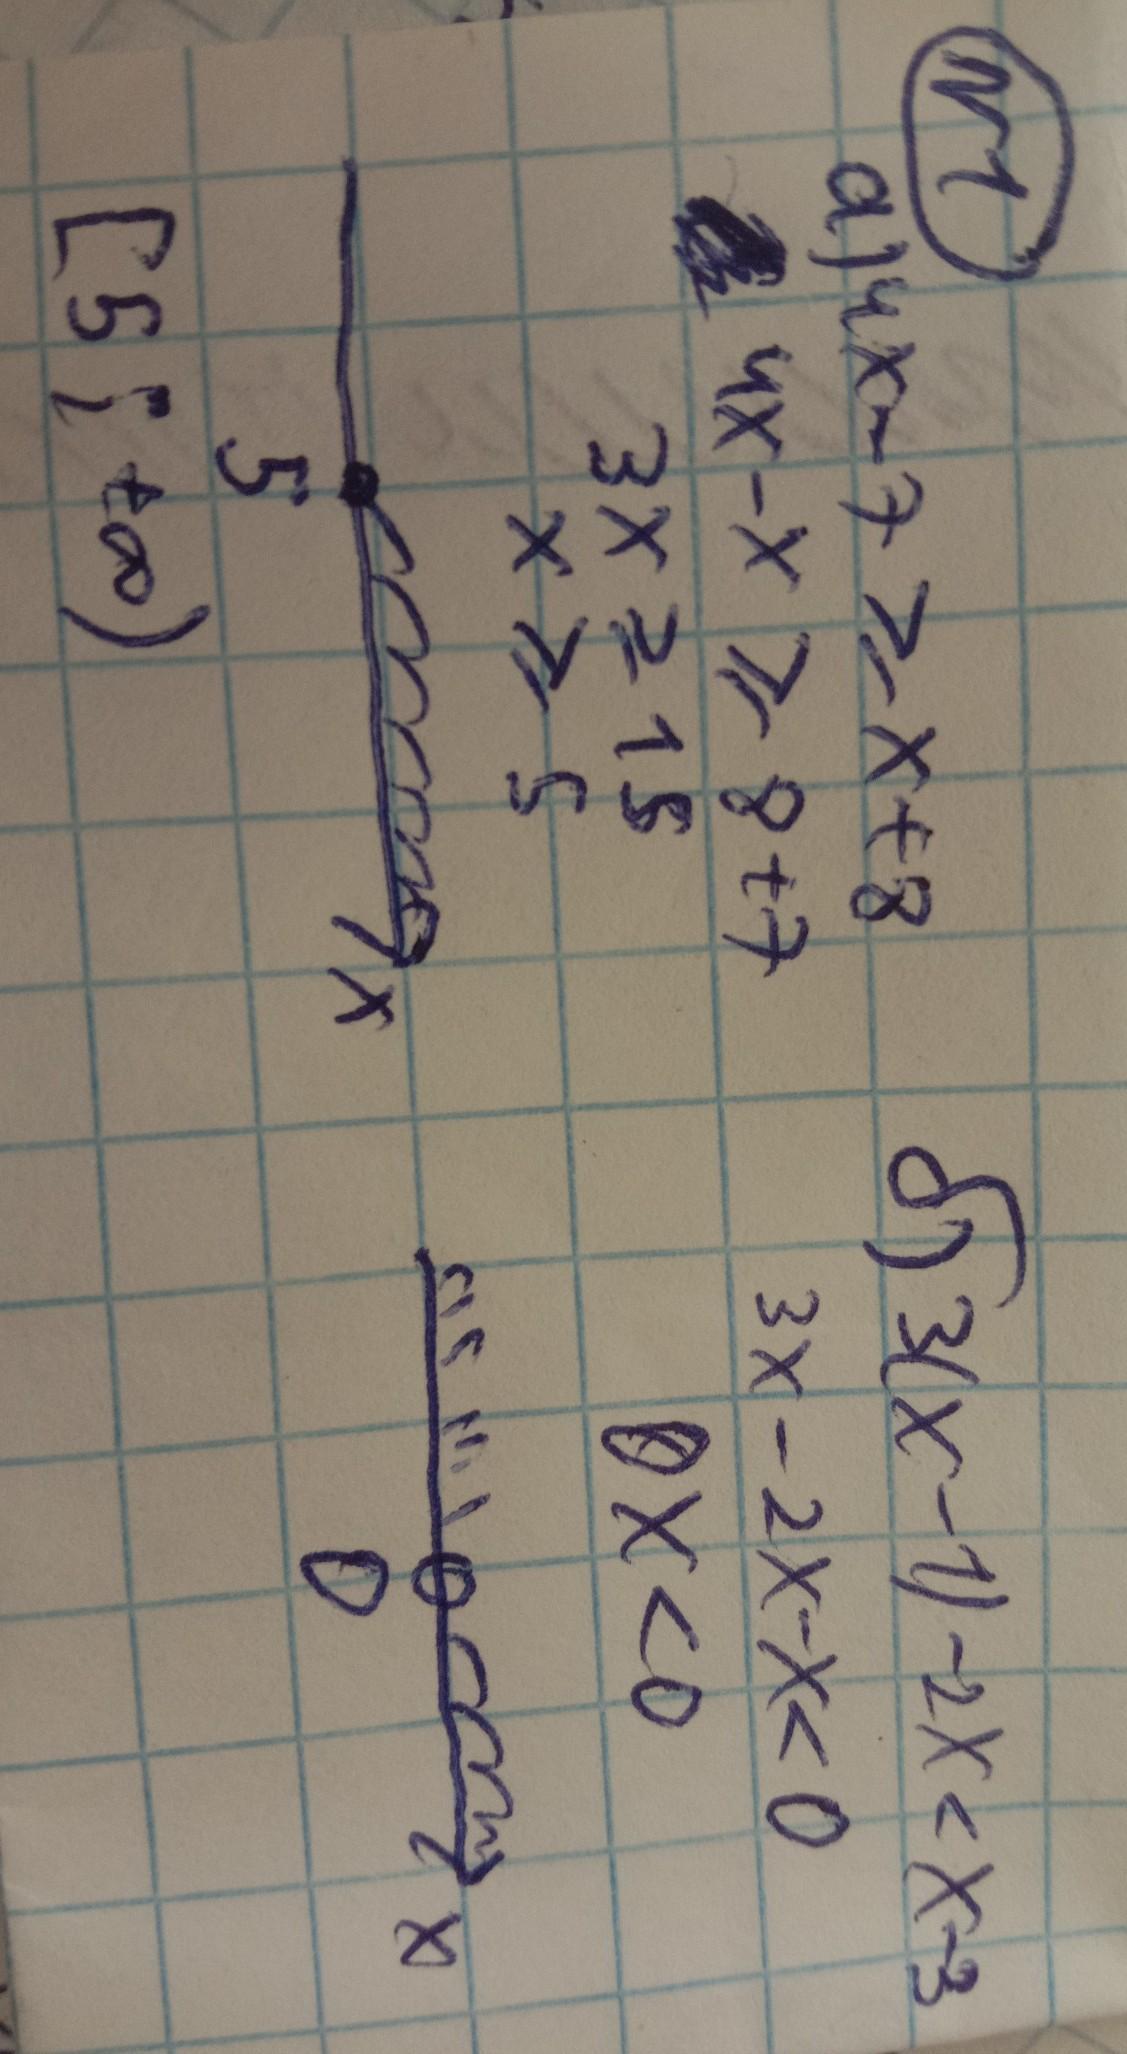 №1
а) 4x-7 ⩾ x+8
4x-x ⩾ 8+7
3x ≥ 15
x ⩾ 5
5 x
[5; +∞)
б) 3(x-1)-2x < x-3
3x-2x-x < 0
0x < 0
0 x